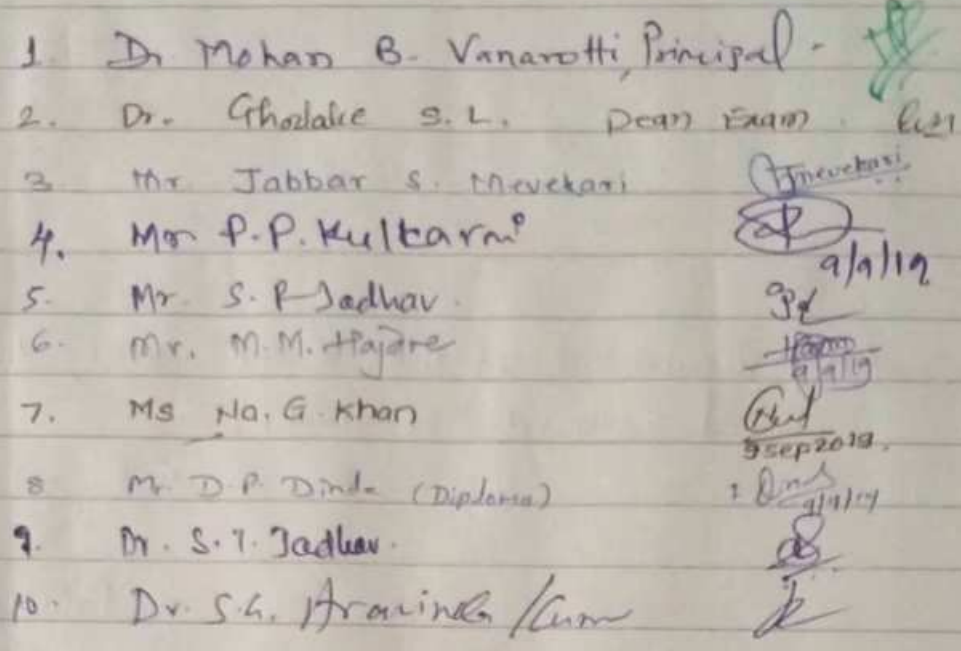 1 Dr Mohan B. Vanarotti, Principal -
2. Dr. Ghodake S. L. Dean Exam.
3 Mr Jabbar S. Mevekari Jmevekari
4. Mr P. P. Kulkarni
9/9/19
5. Mr. S. P. Jadhav.
6. Mr. M. M. Hajare
9/9/19
7. Ms Na. G. Khan
9 sep 2019.
8 Mr. D P. Dinde (Diploma)
9/9/19
9. Dr. S. T. Jadhav.
10. Dr. S. G. Aravinda Kum